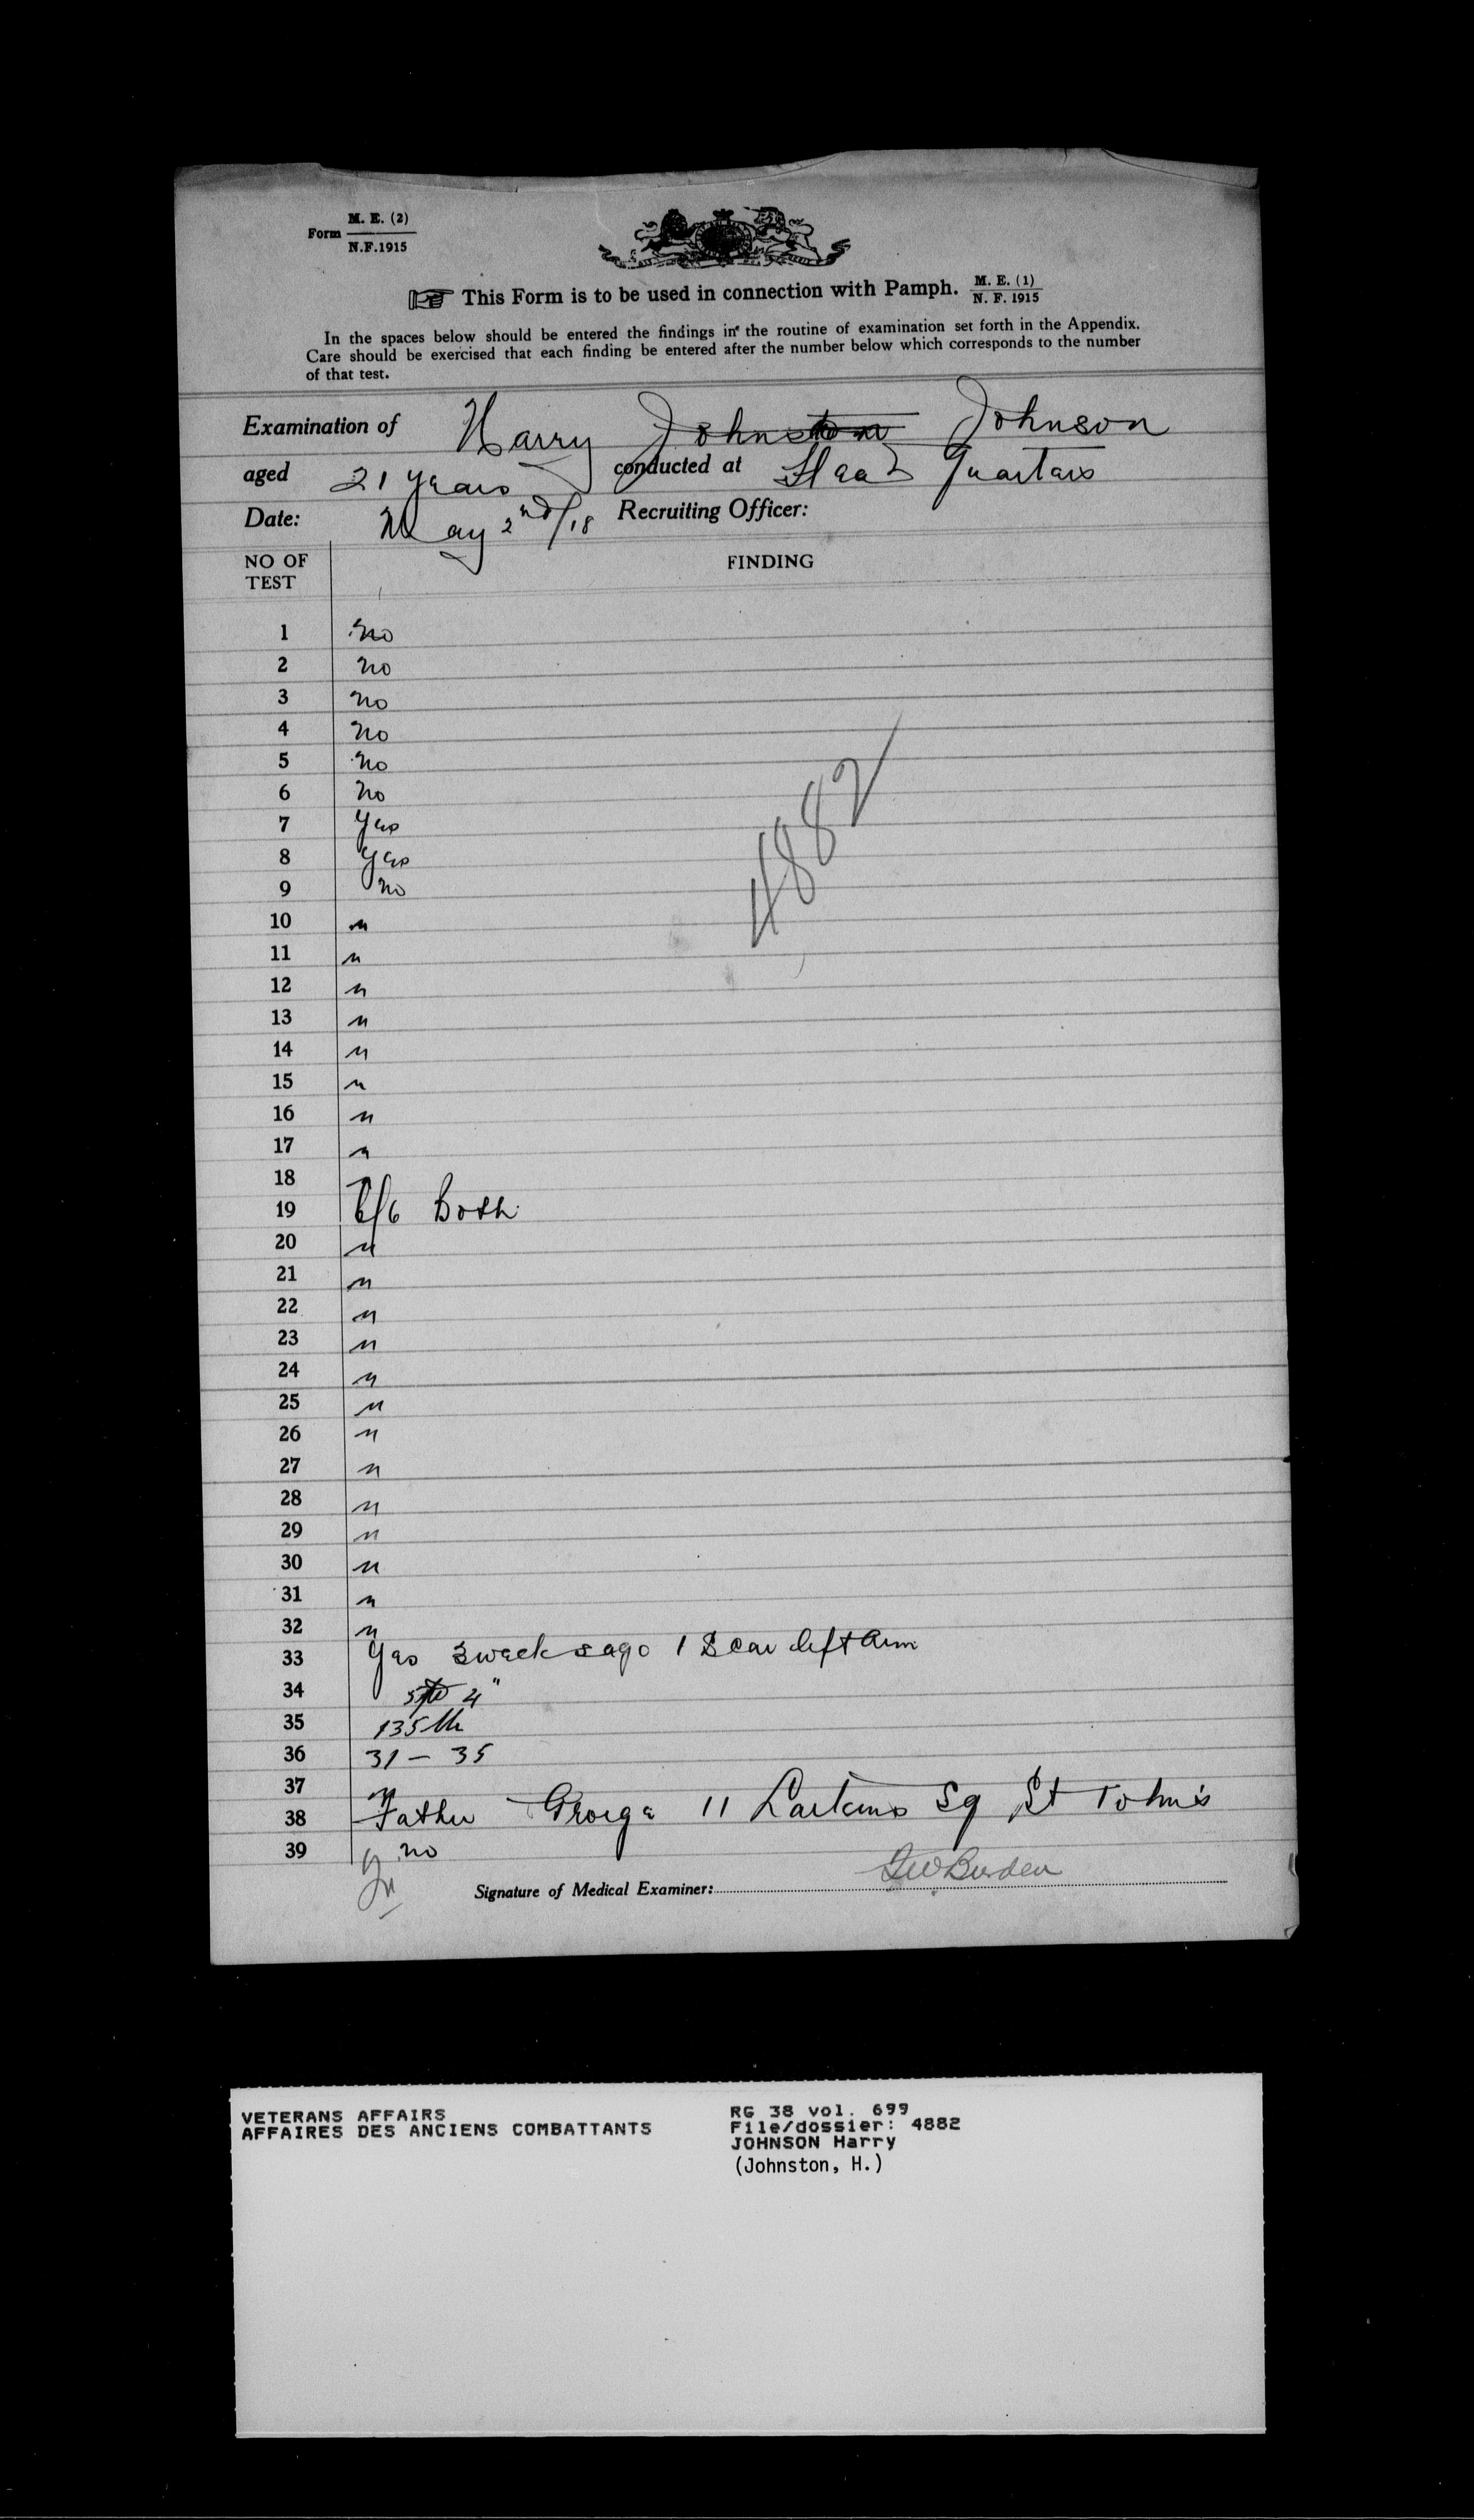 Form M. E. (2)
N.F.1915
This Form is to be used in connection with Pamph. M. E. (1)
N. F. 1915
In the spaces below should be entered the findings in the routine of examination set forth in the Appendix.
Care should be exercised that each finding be entered after the number below which corresponds to the number
of that test.
Examination of Harry Johnston Johnson
aged 21 years conducted at Head Quarters
Date: May 2nd/18 Recruiting Officer:
NO OF TEST FINDING
1 no
2 no
3 no
4 no
5 no
6 no
7 yes
8 yes
9 no
4882
10 n
11 n
12 n
13 n
14 n
15 n
16 n
17 n
18
19 6/6 Both
20 n
21 n
22 n
23 n
24 n
25 n
26 n
27 n
28 n
29 n
30 n
31 n
32 n
33 Yes 3 weeks ago 1 Scar left Arm
34 5 4"
35 135
36 31 - 35
37 n
38 Father George 11 Sq St John's
39 no
Signature of Medical Examiner: Burden
VETERANS AFFAIRS
AFFAIRES DES ANCIENS COMBATTANTS
RG 38 vol. 699
File/dossier: 4882
JOHNSON Harry
(Johnston, H.)